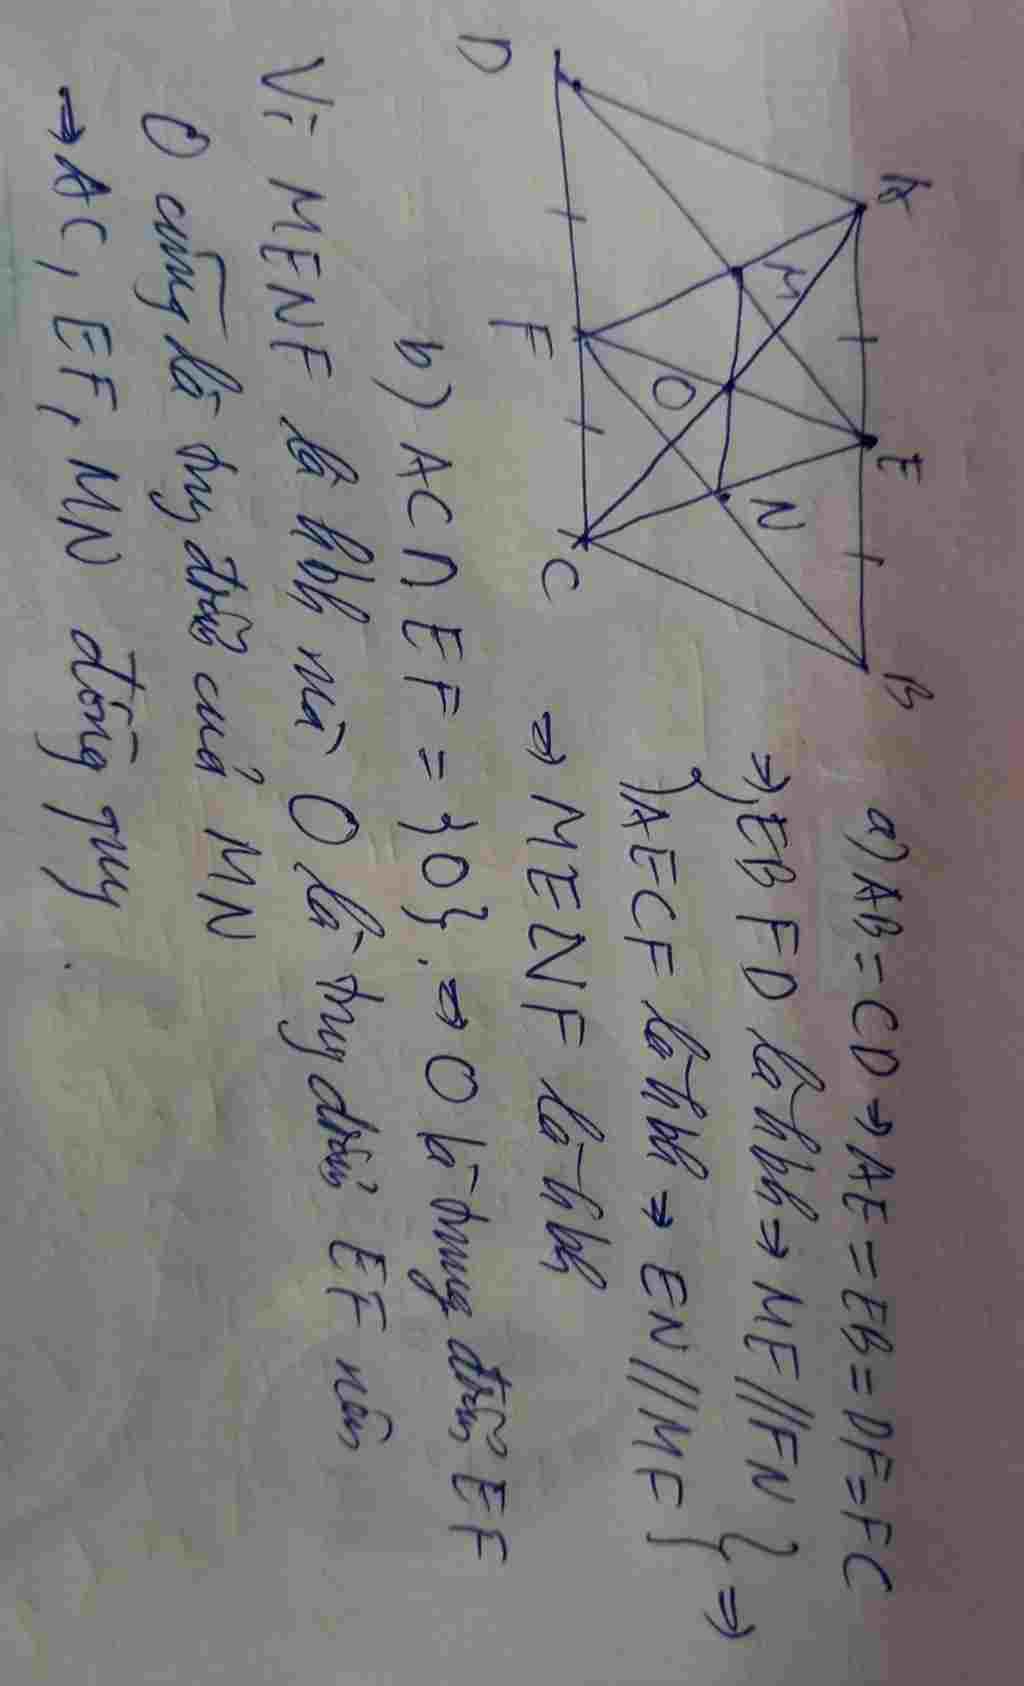 A
E
B
M
N
O
D
F
C
a) AB = CD → AE = EB = DF = FC
⇒ EBFD là hbh ⇒ ME // FN
AECF là hbh ⇒ EN // MF } ⇒
⇒ MENF là hbh
b) AC ∩ EF = {O}. ⇒ O là trung điểm EF
Vì MENF là hbh mà O là trg điểm EF nên
O cũng là trg điểm của MN
⇒ AC, EF, MN đồng quy.